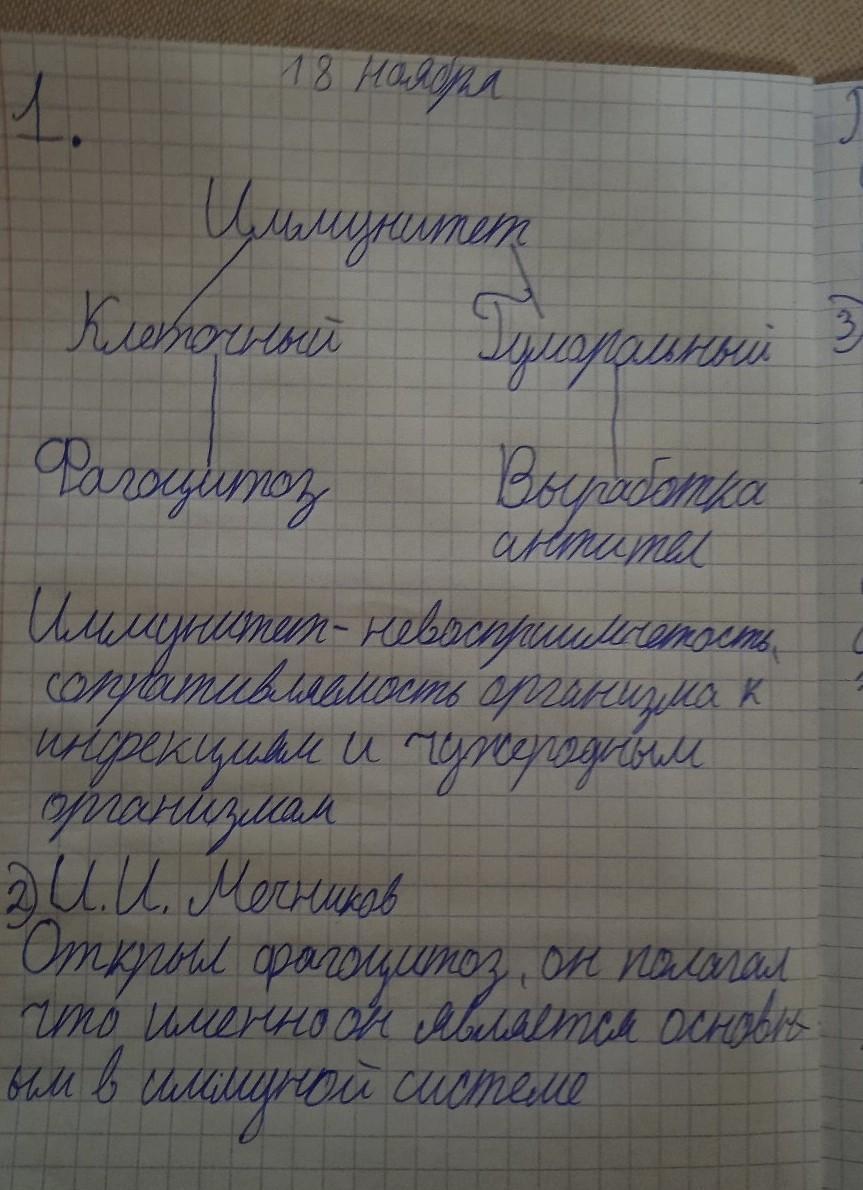 18 ноября
1.
Иммунитет
Клеточный Гуморальный
Фагоцитоз Выработка
антител
Иммунитет - невосприимчетость,
сопративляемость организма к
инфекциям и чужеродным
организмам
2) И.И. Мечников
Открыл фагоцитоз, он полагал
что именно он является основн-
ым в иммуной системе
3)